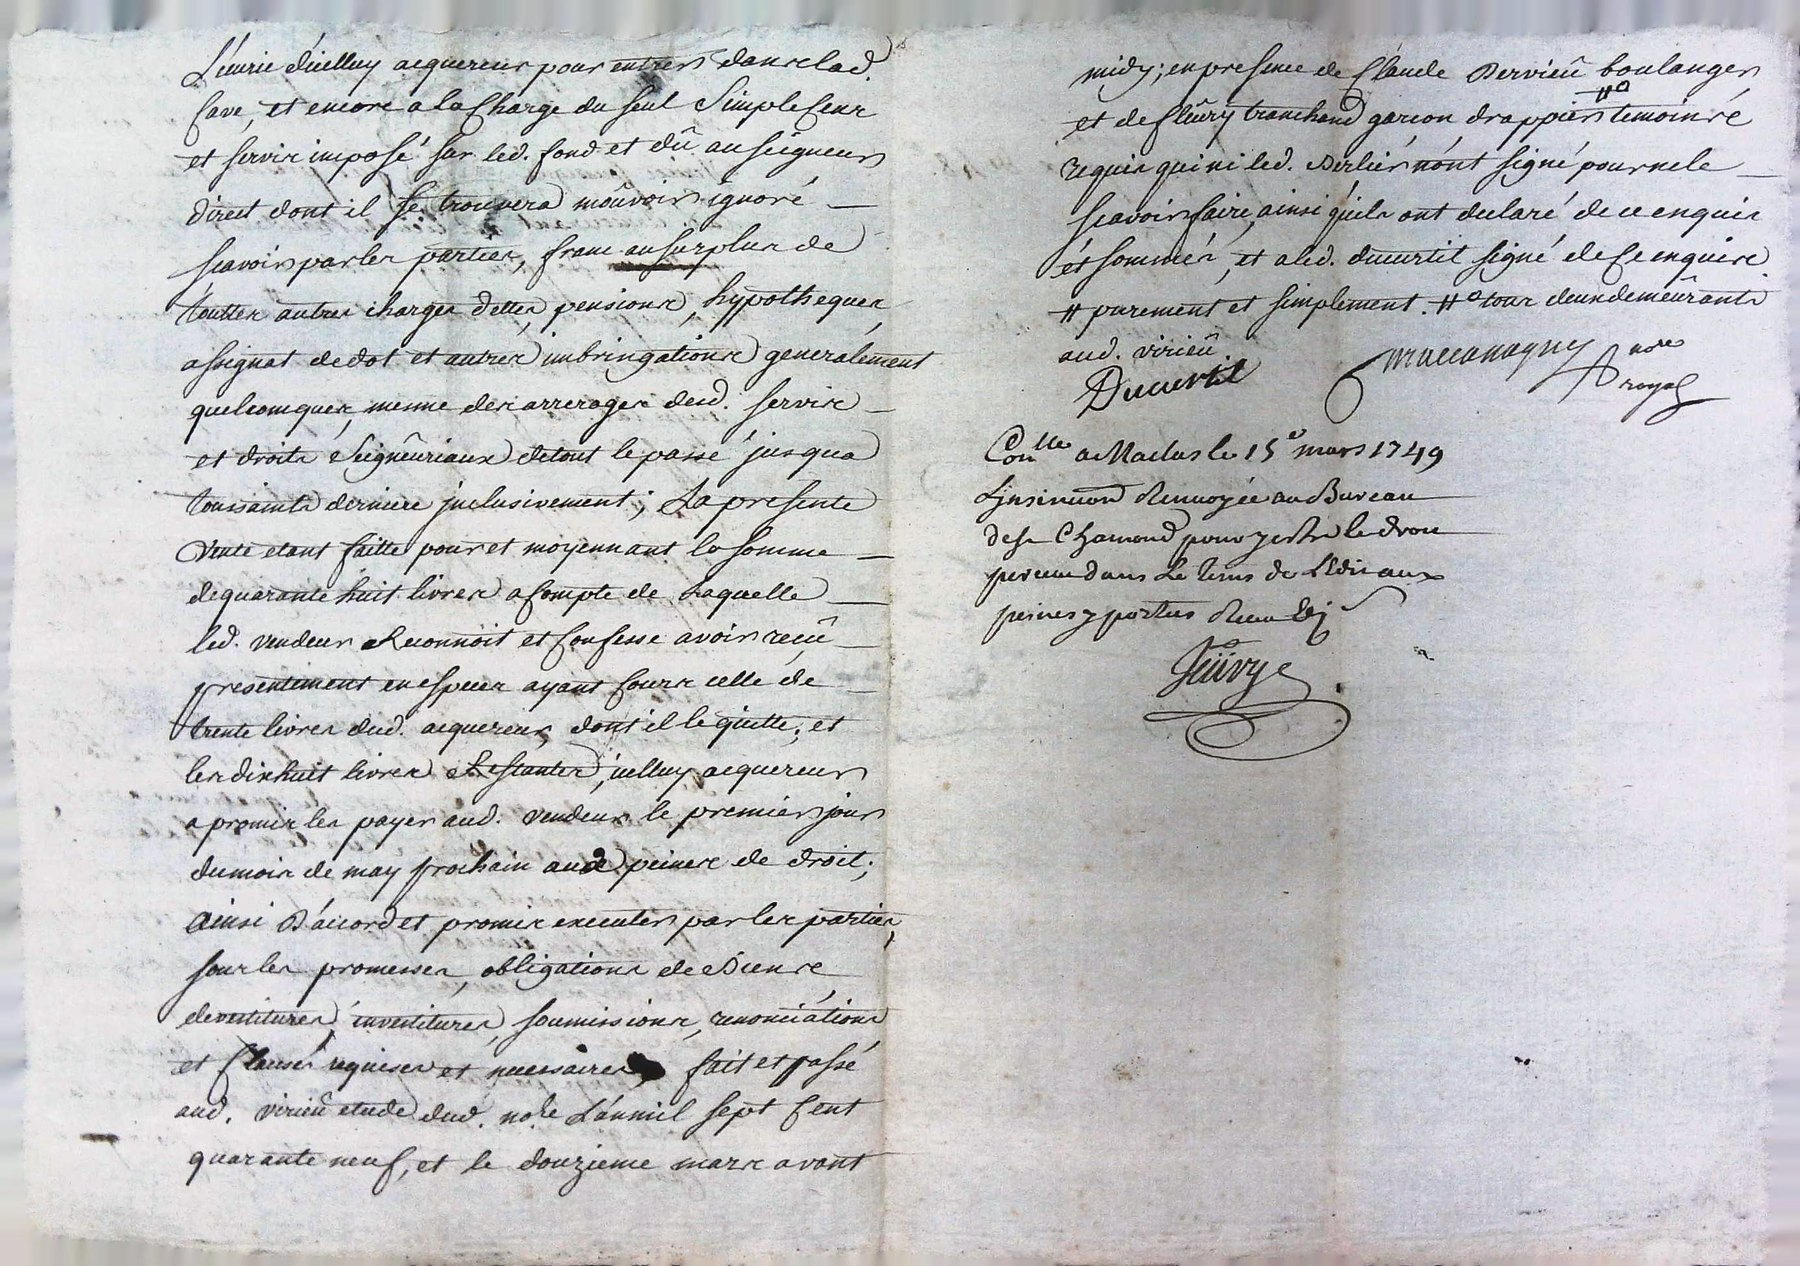 L'ecurie d'icelluy acquereur pour entrer dans lad.
Cave, et encore a la Charge du seul Simple Cens
et servis imposé sur led. fond et dû au seigneur
direct dont il se trouvera mouvoir ignoré
scavoir par les parties, franc au surplus de
touttes autres charges dettes, pensions, hypotheques,
assignat de dot et autres imbringations generalement
quelconques, mesme des arrerages desd. servis
et droits Seigneuriaux de tout le passé jusqu'a
toussaints derniere jnclusivement; La presente
Vente etant faitte pour et moyennant la somme
de quarante huit livres a Compte de Laquelle
led. vendeur Reconnoit et Confesse avoir reçû
presentement en especes ayant Cours celle de
trente livres dud. acquereur, dont il le quitte; et
les dix huit livres Restantes, icelluy acquereur
a promis les payer aud. vendeur le premier jour
du mois de may prochain aux peines de droit;
Ainsi D'accord et promis executer par les parties,
sous les promesses, obligations de Biens,
devestitures, investitures, soumissions, renonciations
et Clauses requises et necessaires, fait et passé
aud. virieû etude dud. no.re L'an mil sept Cent
quarante neuf, et le douzieme mars avant
midy; en presence de Claude Dervieû boulanger
et de fleûry tranchand garcon drappier #a temoins
requis qui ni led. n'ont signé pour ne le
scavoir faire, ainsi qu'ils ont declaré de ce enquis
et sommés, et a led. ducurtil signé de Ce enquis.
# purement et simplement. #a tous deux demeûrants
aud. virieû
Ducurtil nore
royal
Conlle a Maclas le 15e mars 1749
L'jnsinuon Renvoyée au Bureau
de St Chamond pour y estre le droit
perceu dans Le tems de L'Edit aux
peines y portées